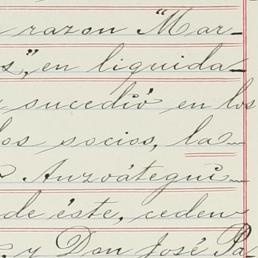 razon "Mar-
s", en liquida-
sucedió en los
los socios, la
Anzoátegui
de éste, ceden
y Don José Pa-